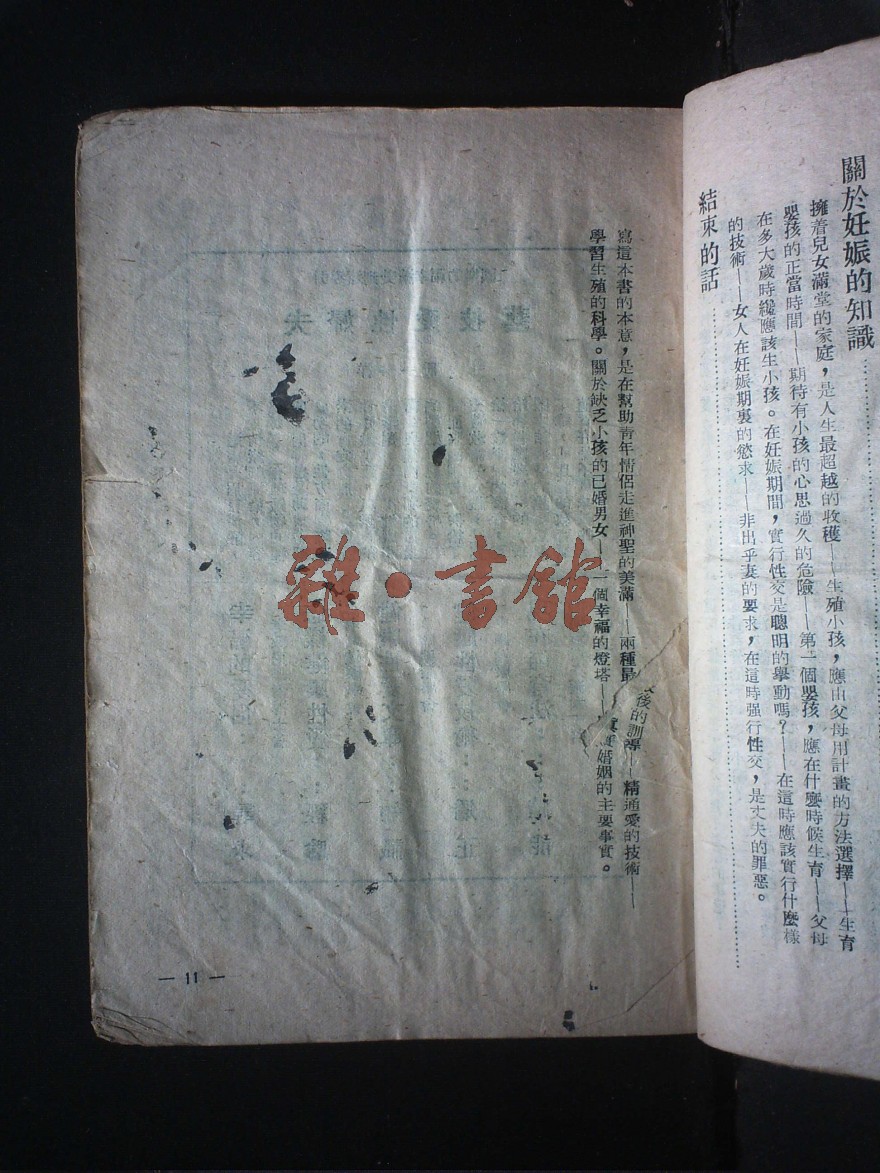 關於妊娠的知識
擁着兒女滿堂的家庭，是人生最超越的收穫——生殖小孩，應由父母用計畫的方法選擇——生育
嬰孩的正當時間——期待有小孩的心思過久的危險——第二個嬰孩，應在什麼時候生育——父母
在多大歲時纔應該生小孩。在妊娠期間，實行性交是聰明的舉動嗎？——在這時應該實行什麼樣
的技術——女人在妊娠期裏的慾求——非出乎妻的要求，在這時强行性交，是丈夫的罪惡。
結束的話
寫這本書的本意，是在幫助青年情侶走進神聖的美滿——兩種最後的訓導——精通愛的技術——
學習生殖的科學。關於缺乏小孩的已婚男女——一個幸福的燈塔——婚姻的主要事實。
— 11 —
雜·書館